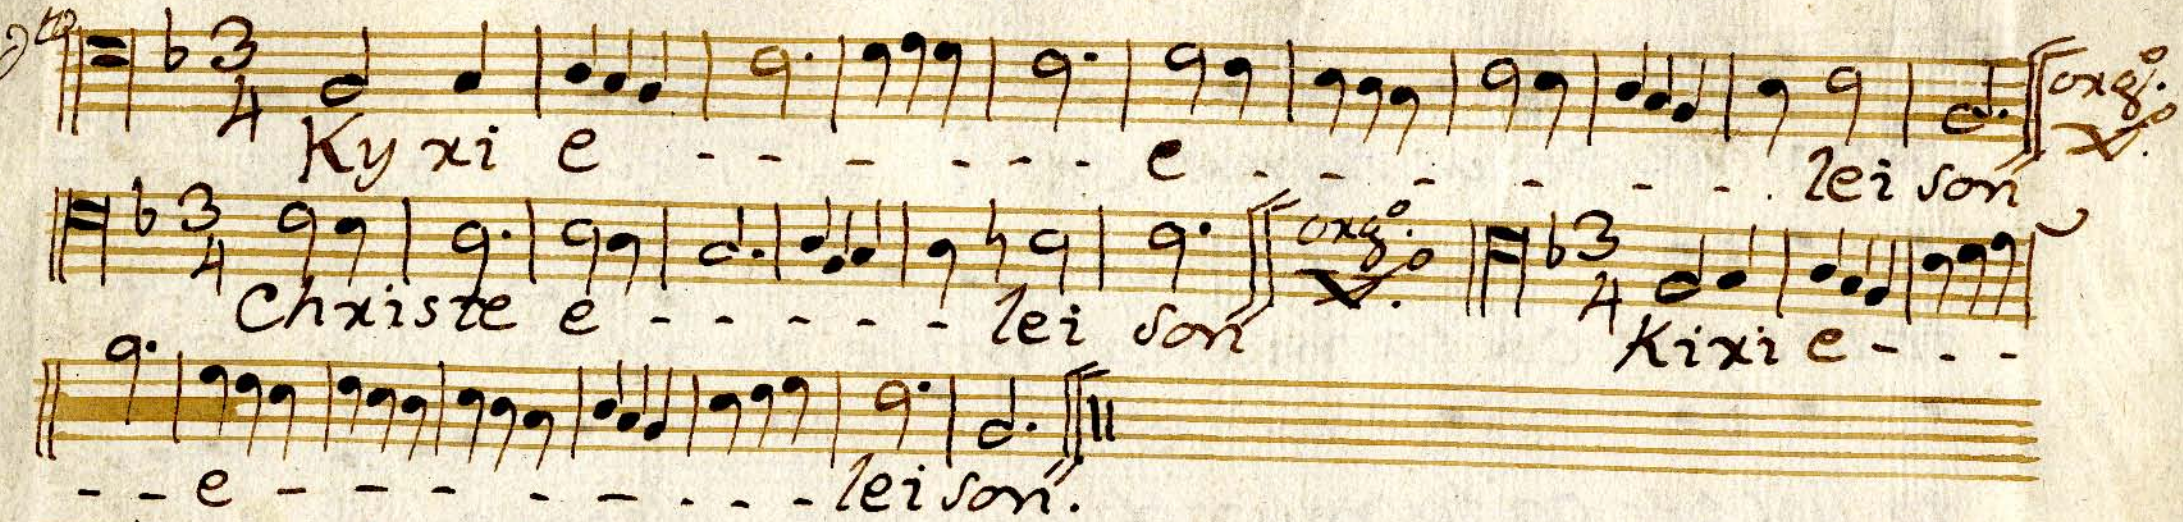 3/4 Kyrie - - - - - - e - - - - - - lei son orgº. V.
3/4 Christe e - - - - - lei son orgº. V. 3/4 Kirie - - -
- - e - - - - - - - - lei son.